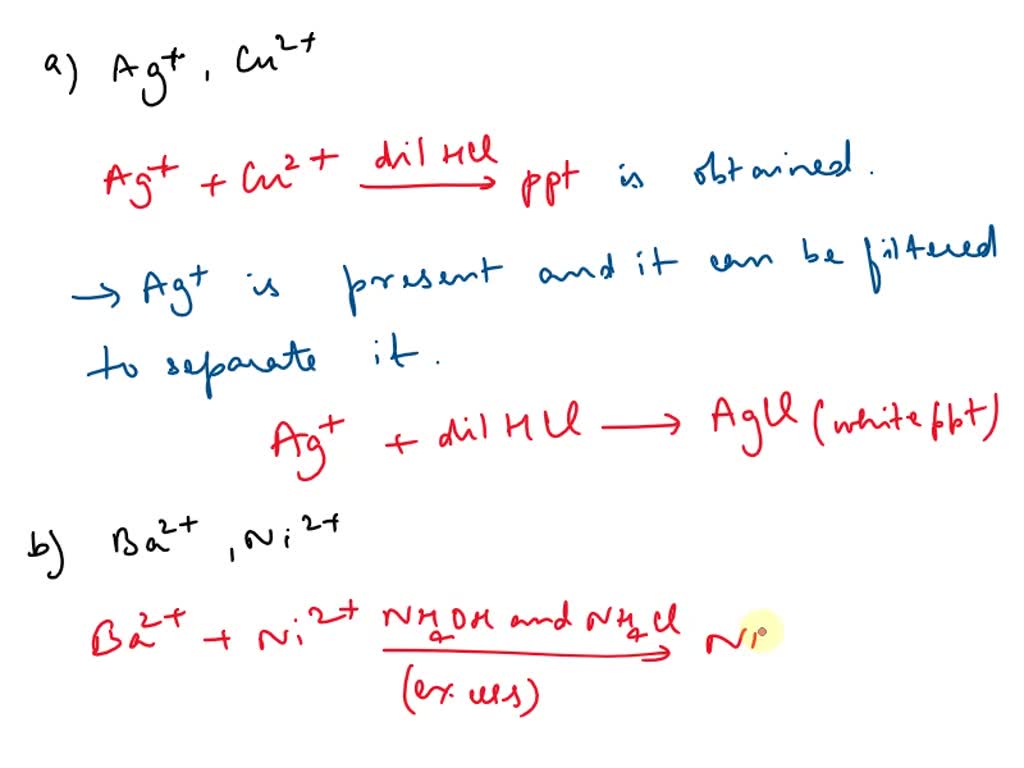 a) Ag⁺, Cu²⁺
Ag⁺ + Cu²⁺ dil HCl → ppt is obtained.
→ Ag⁺ is present and it can be filtered
to separate it.
Ag⁺ + dil HCl → AgCl (white ppt)
b) Ba²⁺, Ni²⁺
Ba²⁺ + Ni²⁺ NH₄OH and NH₄Cl → Ni
(excess)